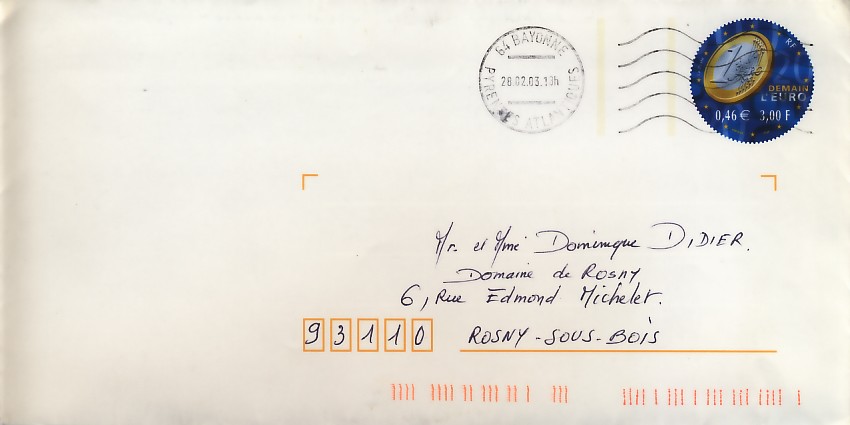 64 BAYONNE
28.02.03.19h
PYRENEES ATLANTIQUES
RF
DEMAIN
L'EURO
0,46 € 3,00 F
Mr. et Mme Dominique DIDIER.
Domaine de Rosny
6, Rue Edmond Michelet.
93110 ROSNY-SOUS-BOIS